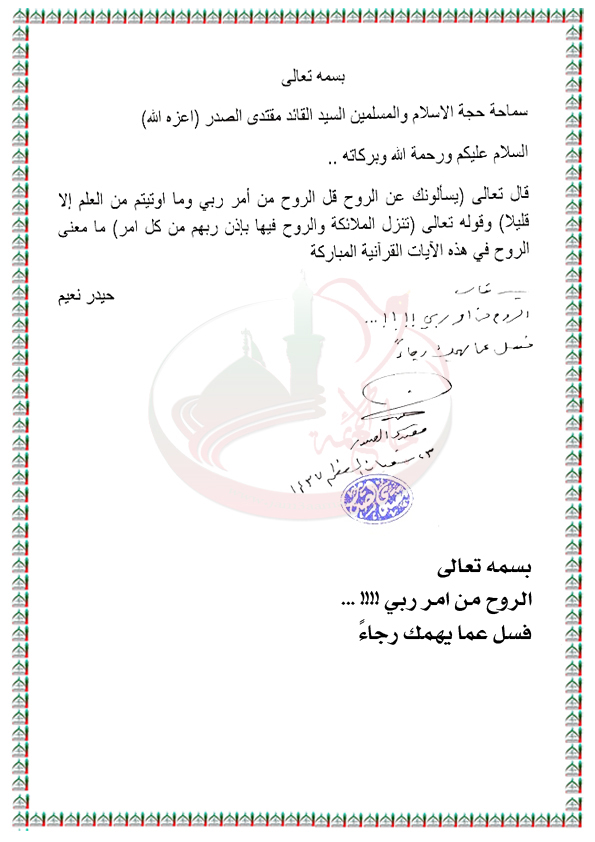 بسمه تعالى
سماحة حجة الاسلام والمسلمين السيد القائد مقتدى الصدر (اعزه الله)
السلام عليكم ورحمة الله وبركاته ..
قال تعالى (يسألونك عن الروح قل الروح من أمر ربي وما اوتيتم من العلم إلا
قليلا) وقوله تعالى (تنزل الملائكة والروح فيها بإذن ربهم من كل امر) ما معنى
الروح في هذه الآيات القرآنية المباركة
حيدر نعيم
بسمه تعالى
الروح من امر ربي !!!! ...
فسل عما يهمك رجاءً
مقتدى الصدر
٢٣ شعبان المعظم ١٤٣٧
بسمه تعالى
الروح من امر ربي !!!! ...
فسل عما يهمك رجاءً